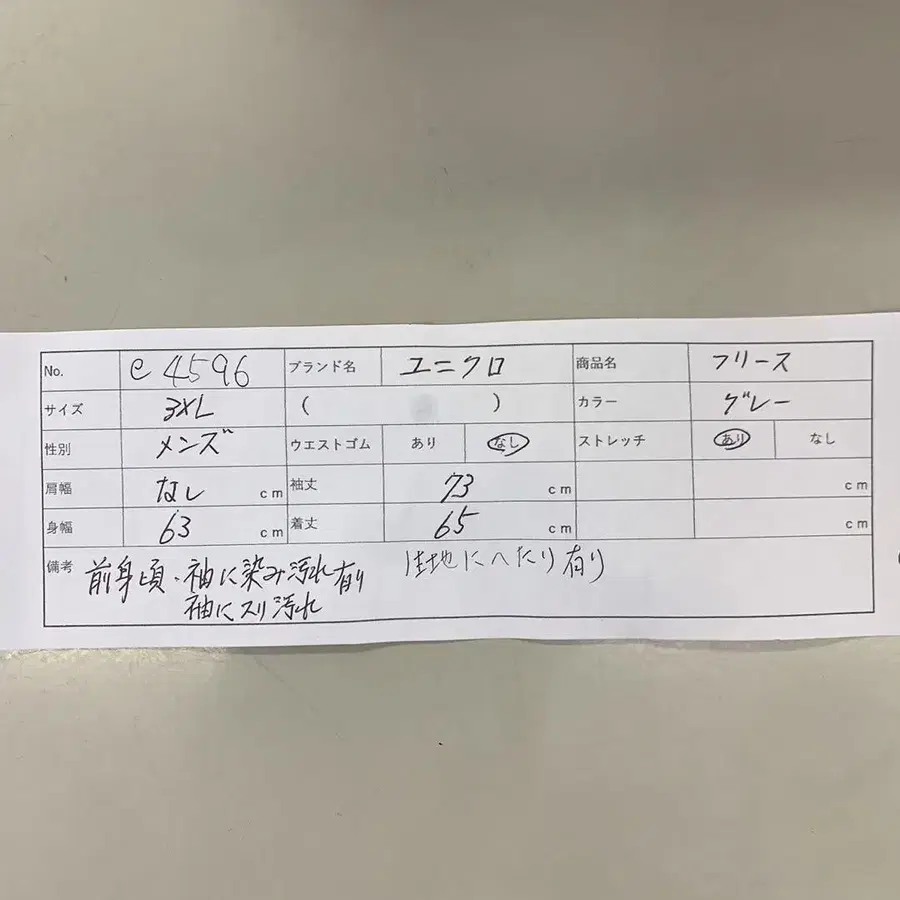 No. e4596 ブランド名 ユニクロ 商品名 フリース
サイズ 3XL ( ) カラー グレー
性別 メンズ ウエストゴム あり なし ストレッチ あり なし
肩幅 なし cm 袖丈 73 cm cm
身幅 63 cm 着丈 65 cm cm
備考 前身頃・袖に染み汚れ有り 生地にへたり有り
袖にスリ汚れ